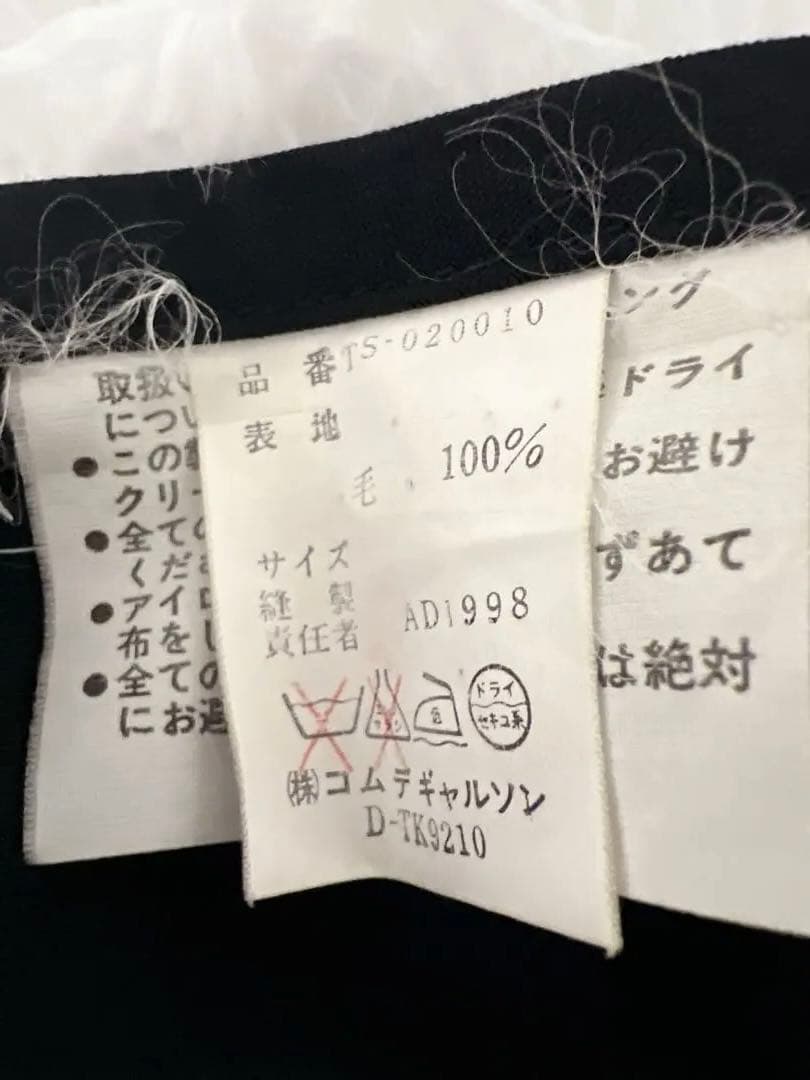 品番 TS-020010
表地
毛 100%
サイズ
縫製 AD1998
責任者
ドライ
セキユ系
㈱コムデギャルソン
D-TK9210
取扱い
につい
ニのり
ク
全て
くだ
アイロ
布をし
全ての
にお避
ング
ドライ
お避け
ずあて
は絶対